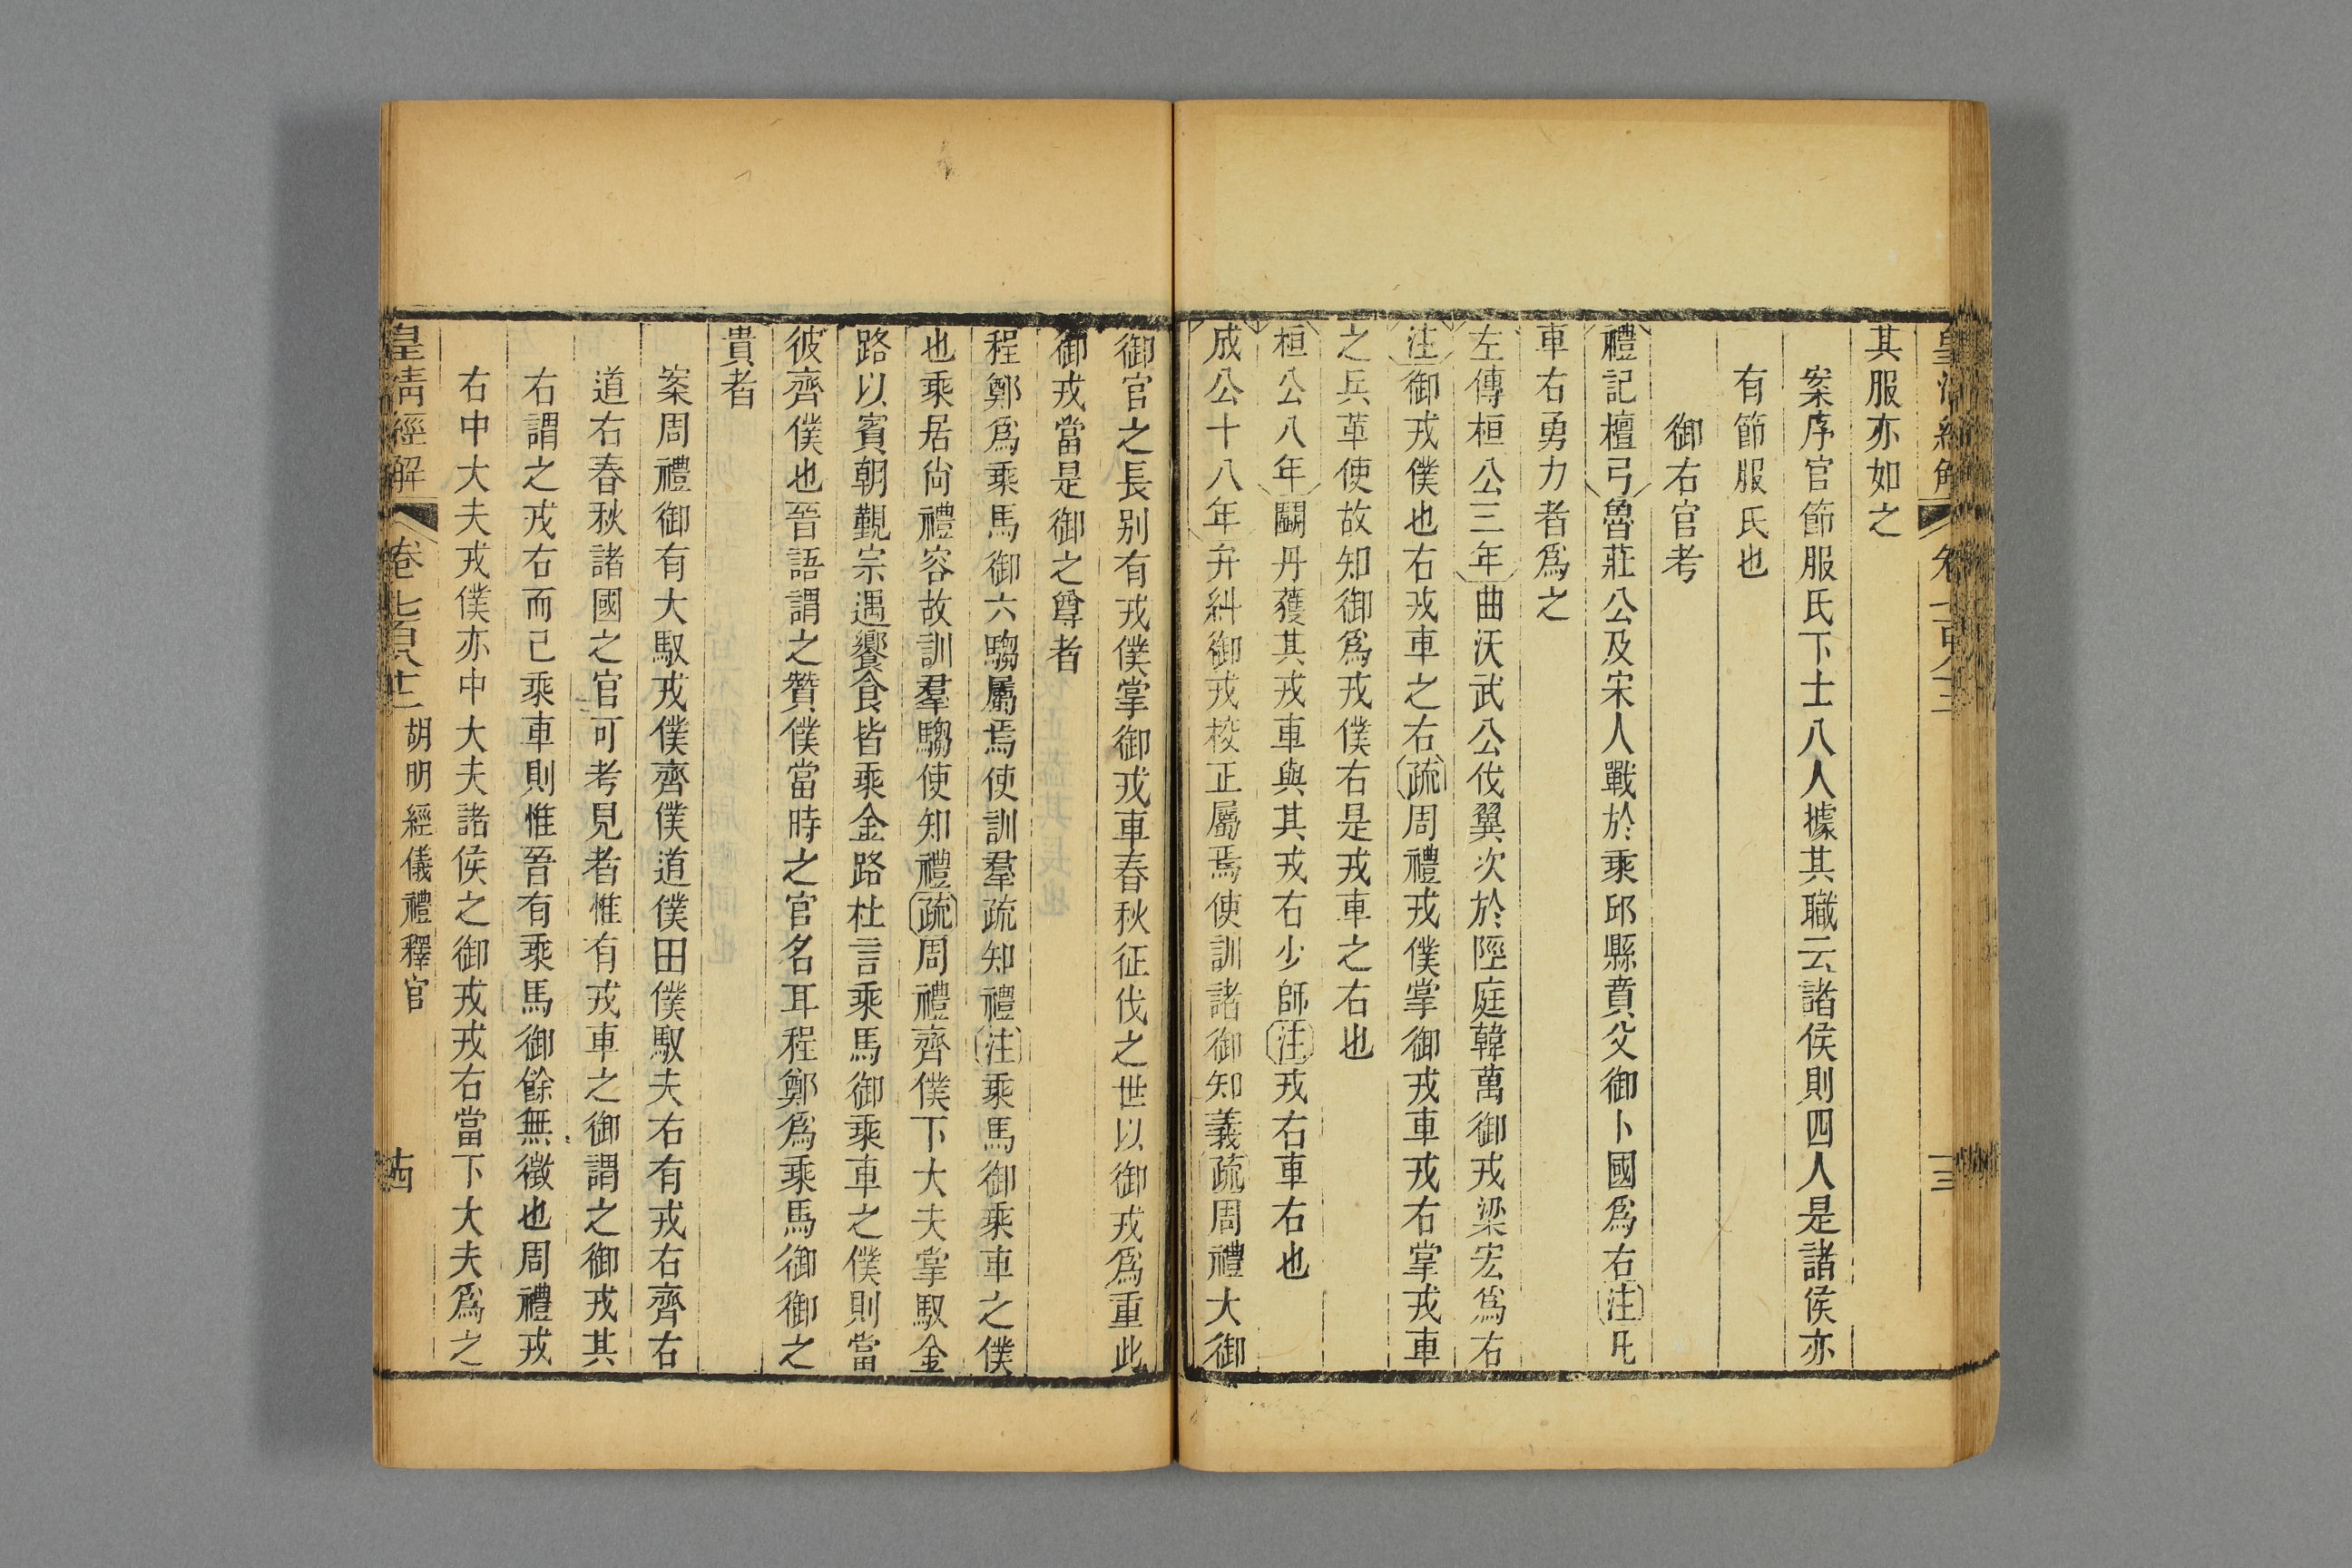 其服亦如之
案序官節服氏下士八人據其職云諸侯則四人是諸侯亦
有節服氏也
御右官考
禮記檀弓魯莊公及宋人戰於乘邱縣賁父御卜國爲右注凡
車右勇力者爲之
左傳桓公三年曲沃武公伐翼次於陘庭韓萬御戎梁宏爲右
注御戎僕也右戎車之右疏周禮戎僕掌御戎車戎右掌戎車
之兵革使故知御爲戎僕右是戎車之右也
桓公八年鬬丹獲其戎車與其戎右少師注戎右車右也
成公十八年弁糾御戎校正屬焉使訓諸御知義疏周禮大御
御官之長別有戎僕掌御戎車春秋征伐之世以御戎爲重此
御戎當是御之尊者
程鄭爲乘馬御六騶屬焉使訓羣疏知禮注乘馬御乘車之僕
也乘居尙禮容故訓羣騶使知禮疏周禮齊僕下大夫掌馭金
路以賓朝覲宗遇饗食皆乘金路杜言乘馬御乘車之僕則當
彼齊僕也晉語謂之贊僕當時之官名耳程鄭爲乘馬御御之
貴者
案周禮御有大馭戎僕齊僕道僕田僕馭夫右有戎右齊右
道右春秋諸國之官可考見者惟有戎車之御謂之御戎其
右謂之戎右而已乘車則惟晉有乘馬御餘無徵也周禮戎
右中大夫戎僕亦中大夫諸侯之御戎戎右當下大夫爲之
皇清經解 卷七百八十二 胡明經儀禮釋官 十四